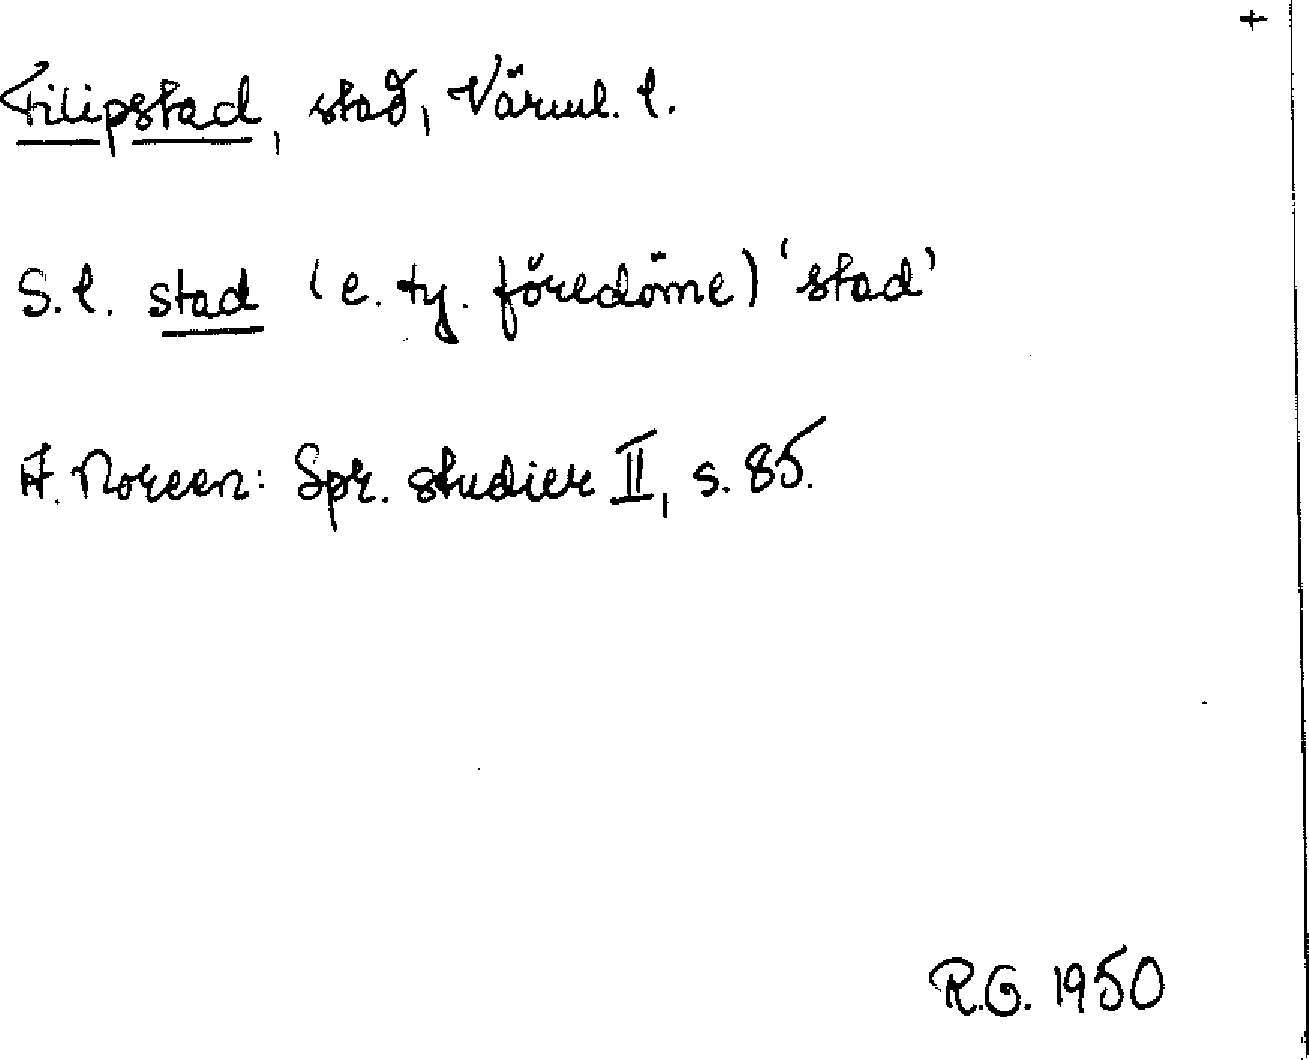 +
Filipstad, stad, Värml. l.
S.l. stad (e. ty. föredöme) 'stad'
A. Noreen: Spr. studier II, s. 85.
R.G. 1950